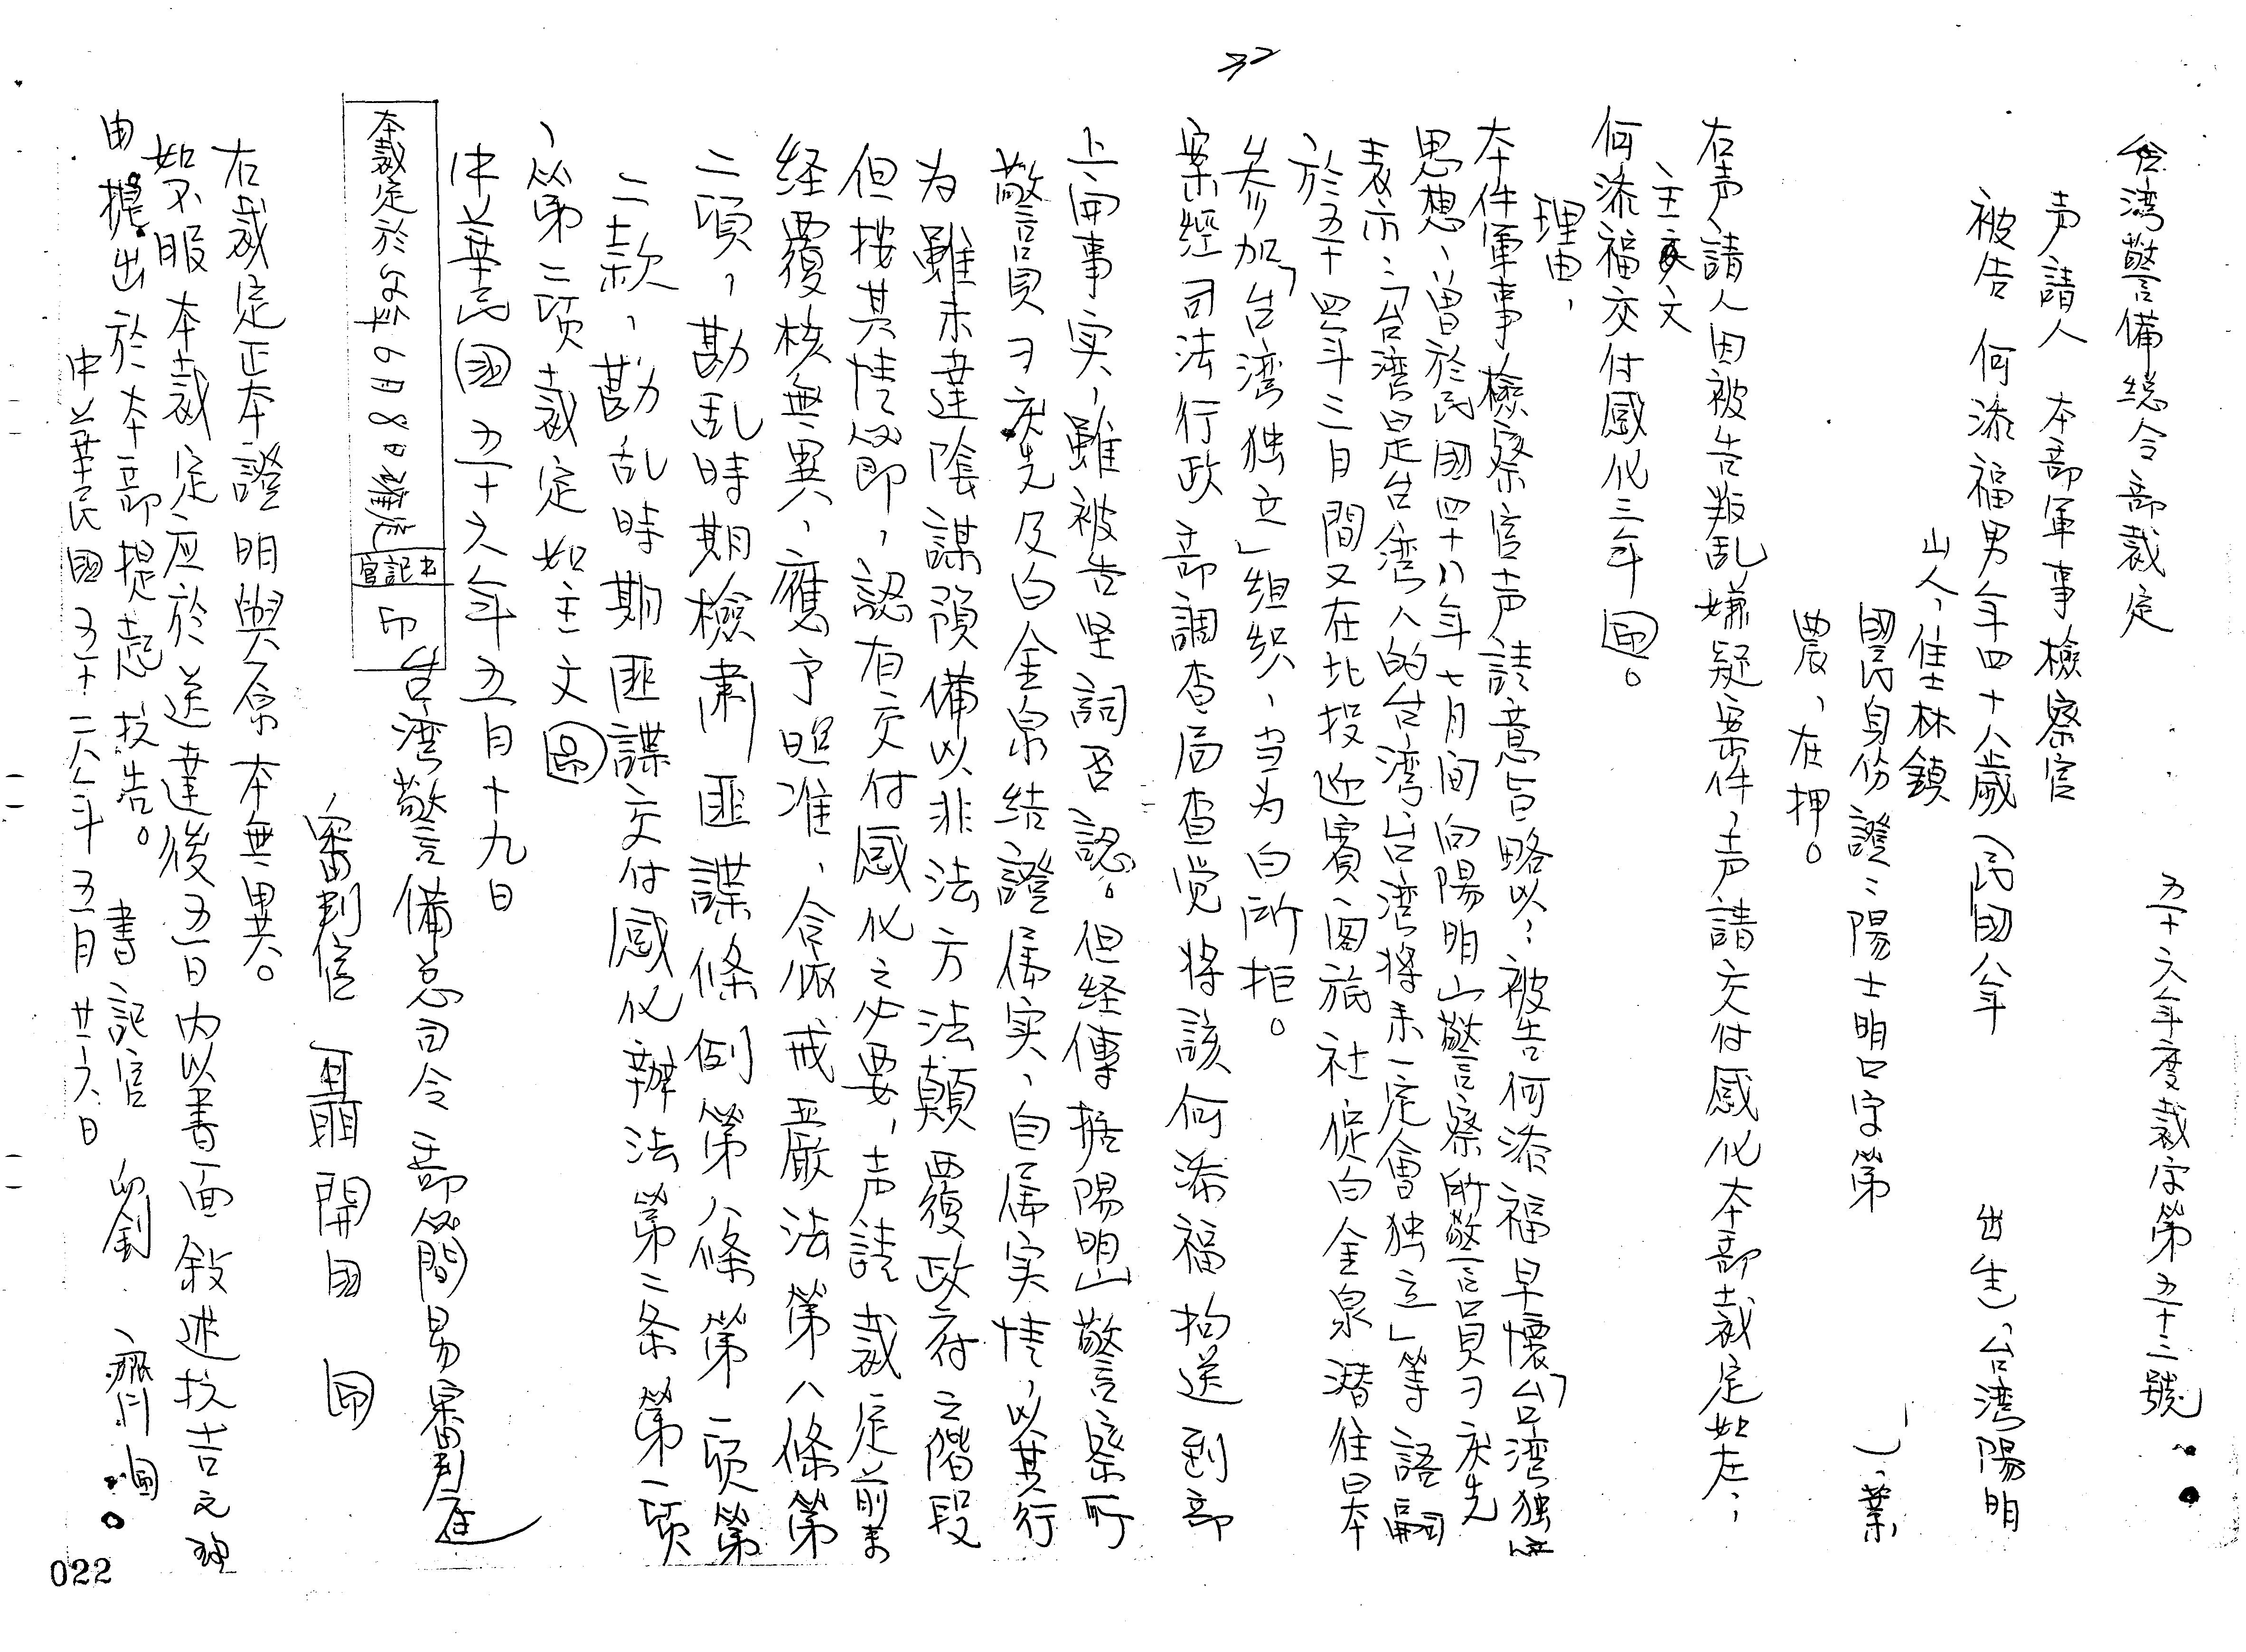 32
台湾警备總令部裁定
五十六年度裁字第五十二號
声請人 本部軍事檢察官
被告 何添福男年四十八歲（民国八年 出生）、台湾陽明
山人、住士林鎮
國民身份證：陽士明口字第 ）、業
農、在押。
右声請人因被告叛乱嫌疑案件、声請交付感化本部裁定如左：
主文
何添福交付感化三年㊞。
理由、
本件軍事檢察官声請意旨略以：被告何添福早懷「台湾独立
思想、曾於民國四十八年七月间向陽明山警察所警員刁庆先
表示：「台湾是台湾人的台湾台湾将来一定會独立」等語嗣
於五十四年三月間又在北投迎賓閣旅社促白金泉潜往日本
参加「台湾独立」组织、当为白所拒。
案經司法行政部調查局查觉将該何添福拘送到部
上開事实、雖被告坚詞否認。但经傳据陽明山警察所
警員刁庆先及白金泉结證属实、自属实情、以其行
为雖未達陰謀預備以非法方法顛覆政府之階段
但按其情節、認有交付感化之必要、声請裁定前来
经覆核無異、應予照准、合依戒严法第八條第
二項、勘乱時期檢肅匪諜條例第八條第一项第
二款、勘乱時期匪諜交付感化辦法第二条第一项
、第二项裁定如主文㊞
中華民國五十六年五月十九日
台湾警备总司令部简易審判庭
審判官 聶開国 ㊞
本裁定於56年6月8日確定 書記官 印
右裁定正本證明與原本無異。
如不服本裁定应於送達後五日内以書面敘述抗告之理
由提出於本部提起抗告。
書記官 劉 ㊞
中華民國五十六年五月廿六日
022